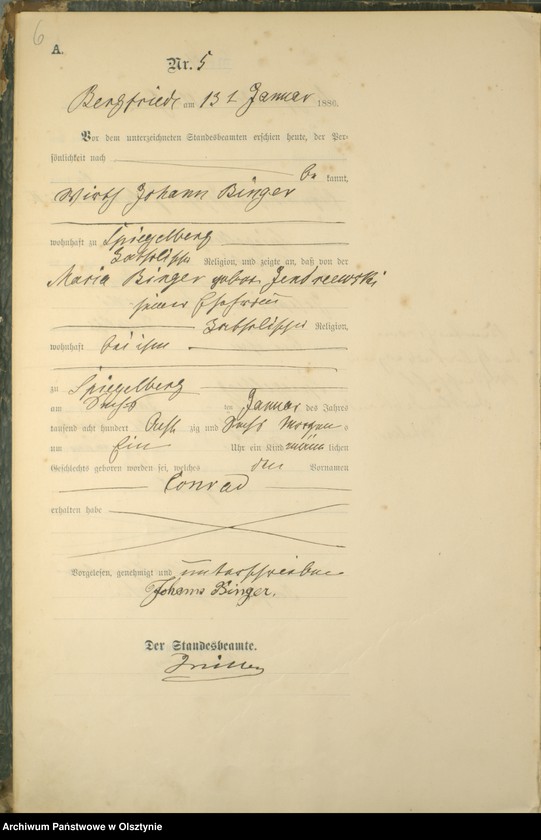 6
A.
Nr. 5
Bergfriede am 13 t Januar 1886.
Vor dem unterzeichneten Standesbeamten erschien heute, der Per-
sönlichkeit nach
be kannt,
Wirth Johann Binger
wohnhaft zu Spiegelberg
katholischer Religion, und zeigte an, daß von der
Maria Binger geboren Jendrzewski
seiner Ehefrau
katholischer Religion,
wohnhaft bei ihm
zu Spiegelberg
am sechs ten Januar des Jahrs
tausend acht hundert Acht zig und Sechs Morgens
um Ein Uhr ein Kind männ lichen
Geschlechts geboren worden sei, welches den Vornamen
Conrad
erhalten habe
Vorgelesen, genehmigt und unterschrieben
Johann Binger.
Der Standesbeamte.
Archiwum Państwowe w Olsztynie